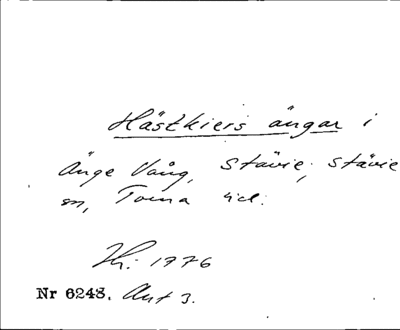 Hästkiers ängar i
Änge Vång, Stävie; Stävie
sn, Torna hd.
Hr: 1776
Nr 6248. Akt 3.